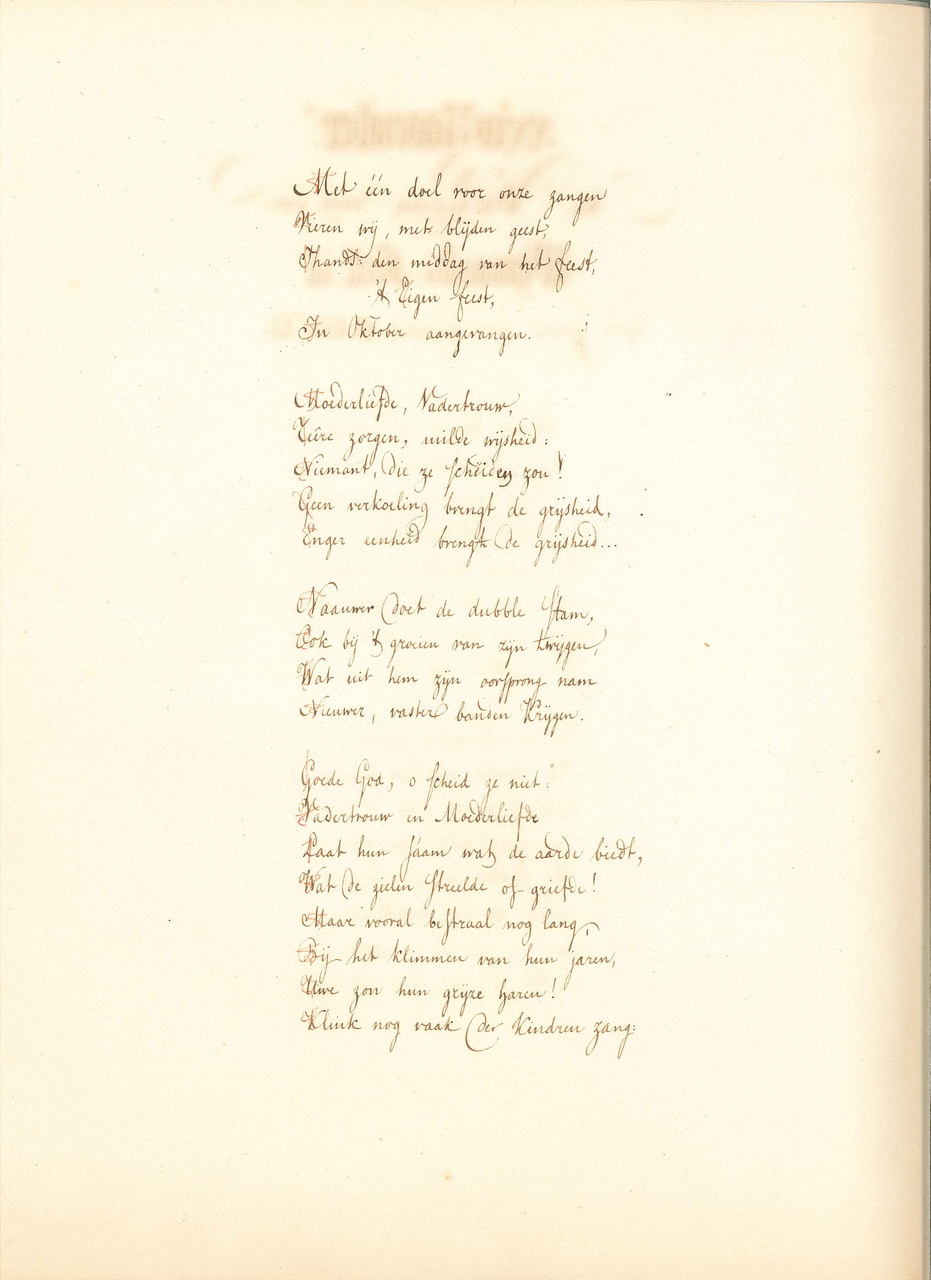 Met één doel voor onze zangen
Vieren wij, met blijden geest,
Thands den middag van het feest,
't Eigen feest,
In Oktober aangevangen.
Moederliefde, Vadertrouw,
Teêre zorgen, milde wijsheid:
Niemant, die ze scheiden zou!
Geen verkoeling brengt de grijsheid,
Enger eenheid brengt de grijsheid...
Naauwer doet de dubble stam,
Ook bij 't groeien van zijn twijgen,
Wat uit hem zijn oorsprong nam
Nieuwer, vaster banden krijgen.
Goede God, o scheid ze niet:
Vadertrouw en Moederliefde
Laat hun sáam wat de aarde biedt,
Wat de zielen streelde of griefde!
Maar vooral bestraal nog lang,
Bij het klimmen van hun jaren,
Uwe zon hun grijze haren!
Klink nog vaak der Kindren zang: